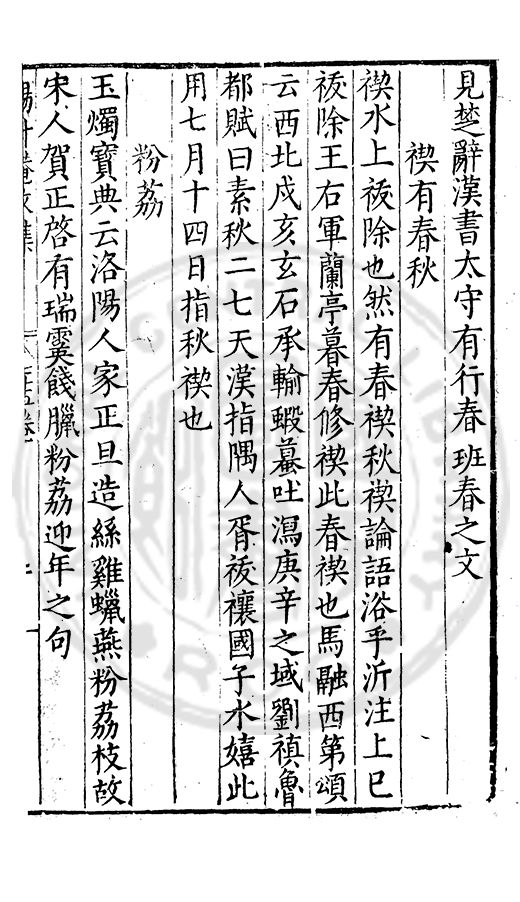 見楚辭漢書太守有行春班春之文
禊有春秋
禊水上祓除也然有春禊秋禊論語浴乎沂注上巳
祓除王右軍蘭亭暮春修禊此春禊也馬融西第頌
云西北戍亥玄石承輸蝦蟇吐瀉庚辛之域劉禎魯
都賦曰素秋二七天漢指隅人胥祓禳國子水嬉此
用七月十四日指秋禊也
粉荔
玉燭寶典云洛陽人家正旦造絲雞蠟燕粉荔枝故
宋人賀正啓有瑞霙餞臘粉荔迎年之句